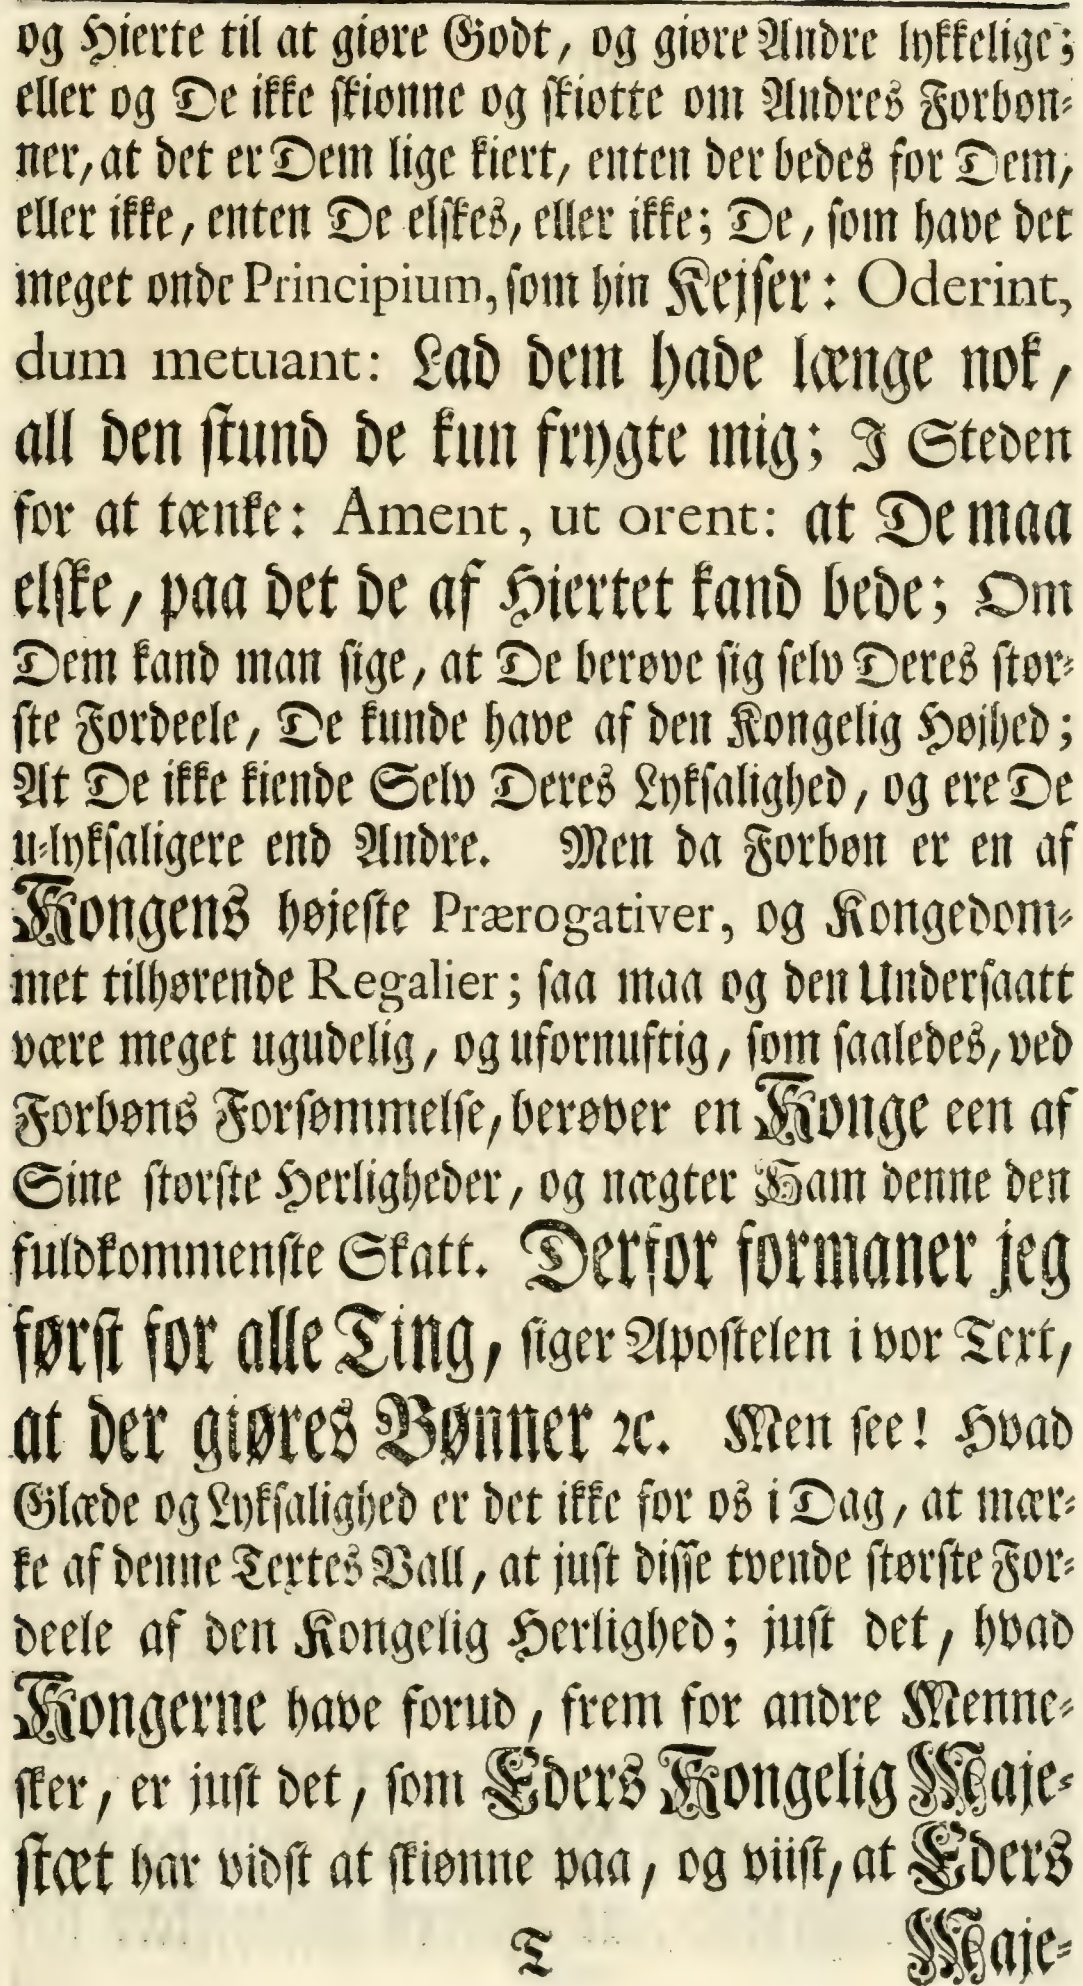 og Hierte til at giøre Godt, og giøre Andre lykkelige;
eller og De ikke skionne og skiøtte om Andres Forbøn-
ner, at det er Dem lige kiert, enten der bedes for Dem,
eller ikke, enten De elskes, eller ikke; De, som have det
meget onde Principium, som hin Kejser: Oderint,
dum metuant: Lad dem hade længe nok,
all den stund de kun frygte mig; I Steden
for at tænke: Ament, ut orent: at De maa
elske, paa det de af Hiertet kand bede; Om
Dem kand man sige, at De berøve sig selv Deres stør-
ste Fordeele, De kunde have af den Kongelig Højhed;
At De ikke kiende Selv Deres Lyksalighed, og ere De
u-lyksaligere end Andre. Men da Forbøn er en af
Kongens højeste Prærogativer, og Kongedom-
met tilhørende Regalier; saa maa og den Undersaatt
være meget ugudelig, og ufornuftig, som saaledes, ved
Forbøns Forsømmelse, berøver en Konge een af
Sine største Herligheder, og nægter Ham denne den
fuldkommenste Skatt. Derfor formaner jeg
først for alle Ting, siger Apostelen i vor Text,
at der giøres Bønner ꝛc. Men see! Hvad
Glæde og Lyksalighed er det ikke for os i Dag, at mær-
ke af denne Textes Vall, at just disse tvende største For-
deele af den Kongelig Herlighed; just det, hvad
Kongerne have forud, frem for andre Menne-
sker, er just det, som Eders Kongelig Maje-
stæt har vidst at skiønne paa, og viist, at Eders
T Maje-